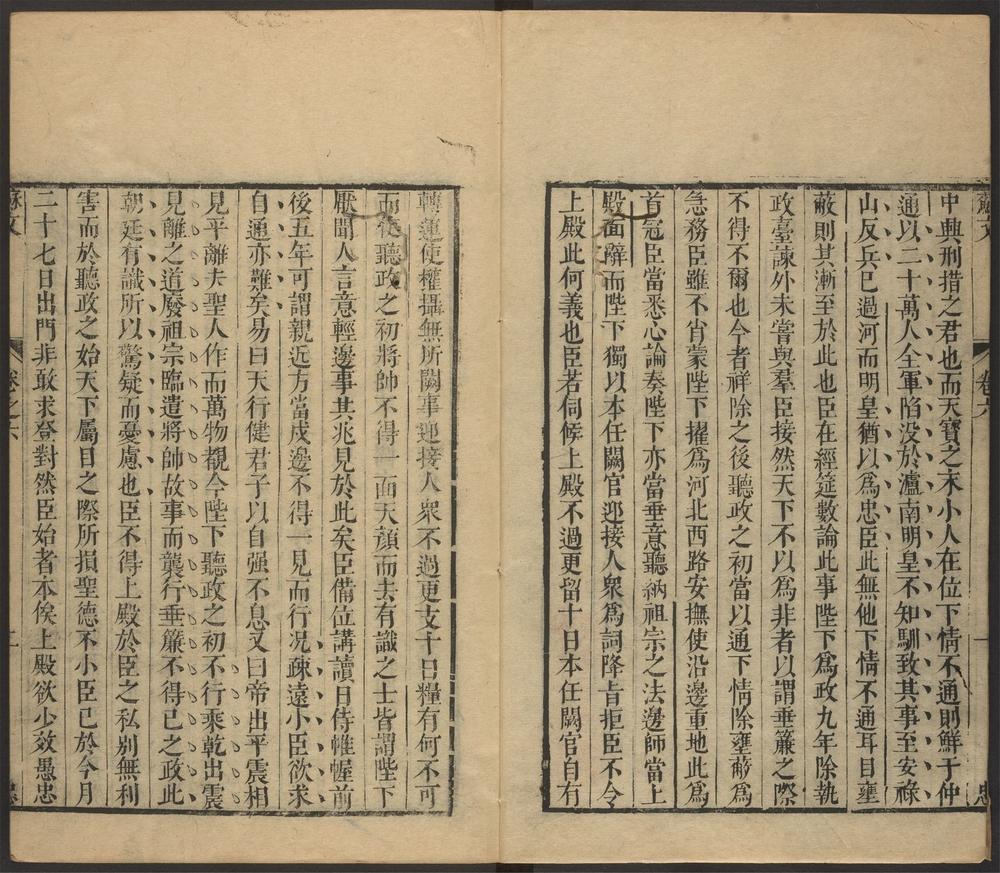 中興刑措之君也而天寶之末小人在位下情不通則鮮于仲
通以二十萬人全軍陷没於瀘南明皇不知馴致其事至安祿
山反兵已過河而明皇猶以爲忠臣此無他下情不通耳目壅
蔽則其漸至於此也臣在經筵數論此事陛下爲政九年除執
政臺諫外未嘗與羣臣接然天下不以爲非者以謂垂簾之際
不得不爾也今者祥除之後聽政之初當以通下情除壅蔽爲
急務臣雖不肖蒙陛下擢爲河北西路安撫使沿邊重地此爲
首冠臣當悉心論奏陛下亦當垂意聽納祖宗之法邊帥當上
殿面辭而陛下獨以本任闕官迎接人衆爲詞降旨拒臣不令
上殿此何義也臣若伺候上殿不過更留十日本任闕官自有
轉運使權攝無所闕事迎接人衆不過更支十日糧有何不可
而使聽政之初將帥不得一面天顔而去有識之士皆謂陛下
厭聞人言意輕邊事其兆見於此矣臣備位講讀日侍帷幄前
後五年可謂親近方當戍邊不得一見而行况疎遠小臣欲求
自通亦難矣易曰天行健君子以自强不息又曰帝出乎震相
見乎離夫聖人作而萬物覩今陛下聽政之初不行乘乾出震
見離之道廢祖宗臨遣將帥故事而襲行垂簾不得已之政此
朝廷有識所以驚疑而憂慮也臣不得上殿於臣之私别無利
害而於聽政之始天下屬目之際所損聖德不小臣已於今月
二十七日出門非敢求登對然臣始者本俟上殿欲少效愚忠
蘇文
卷之六